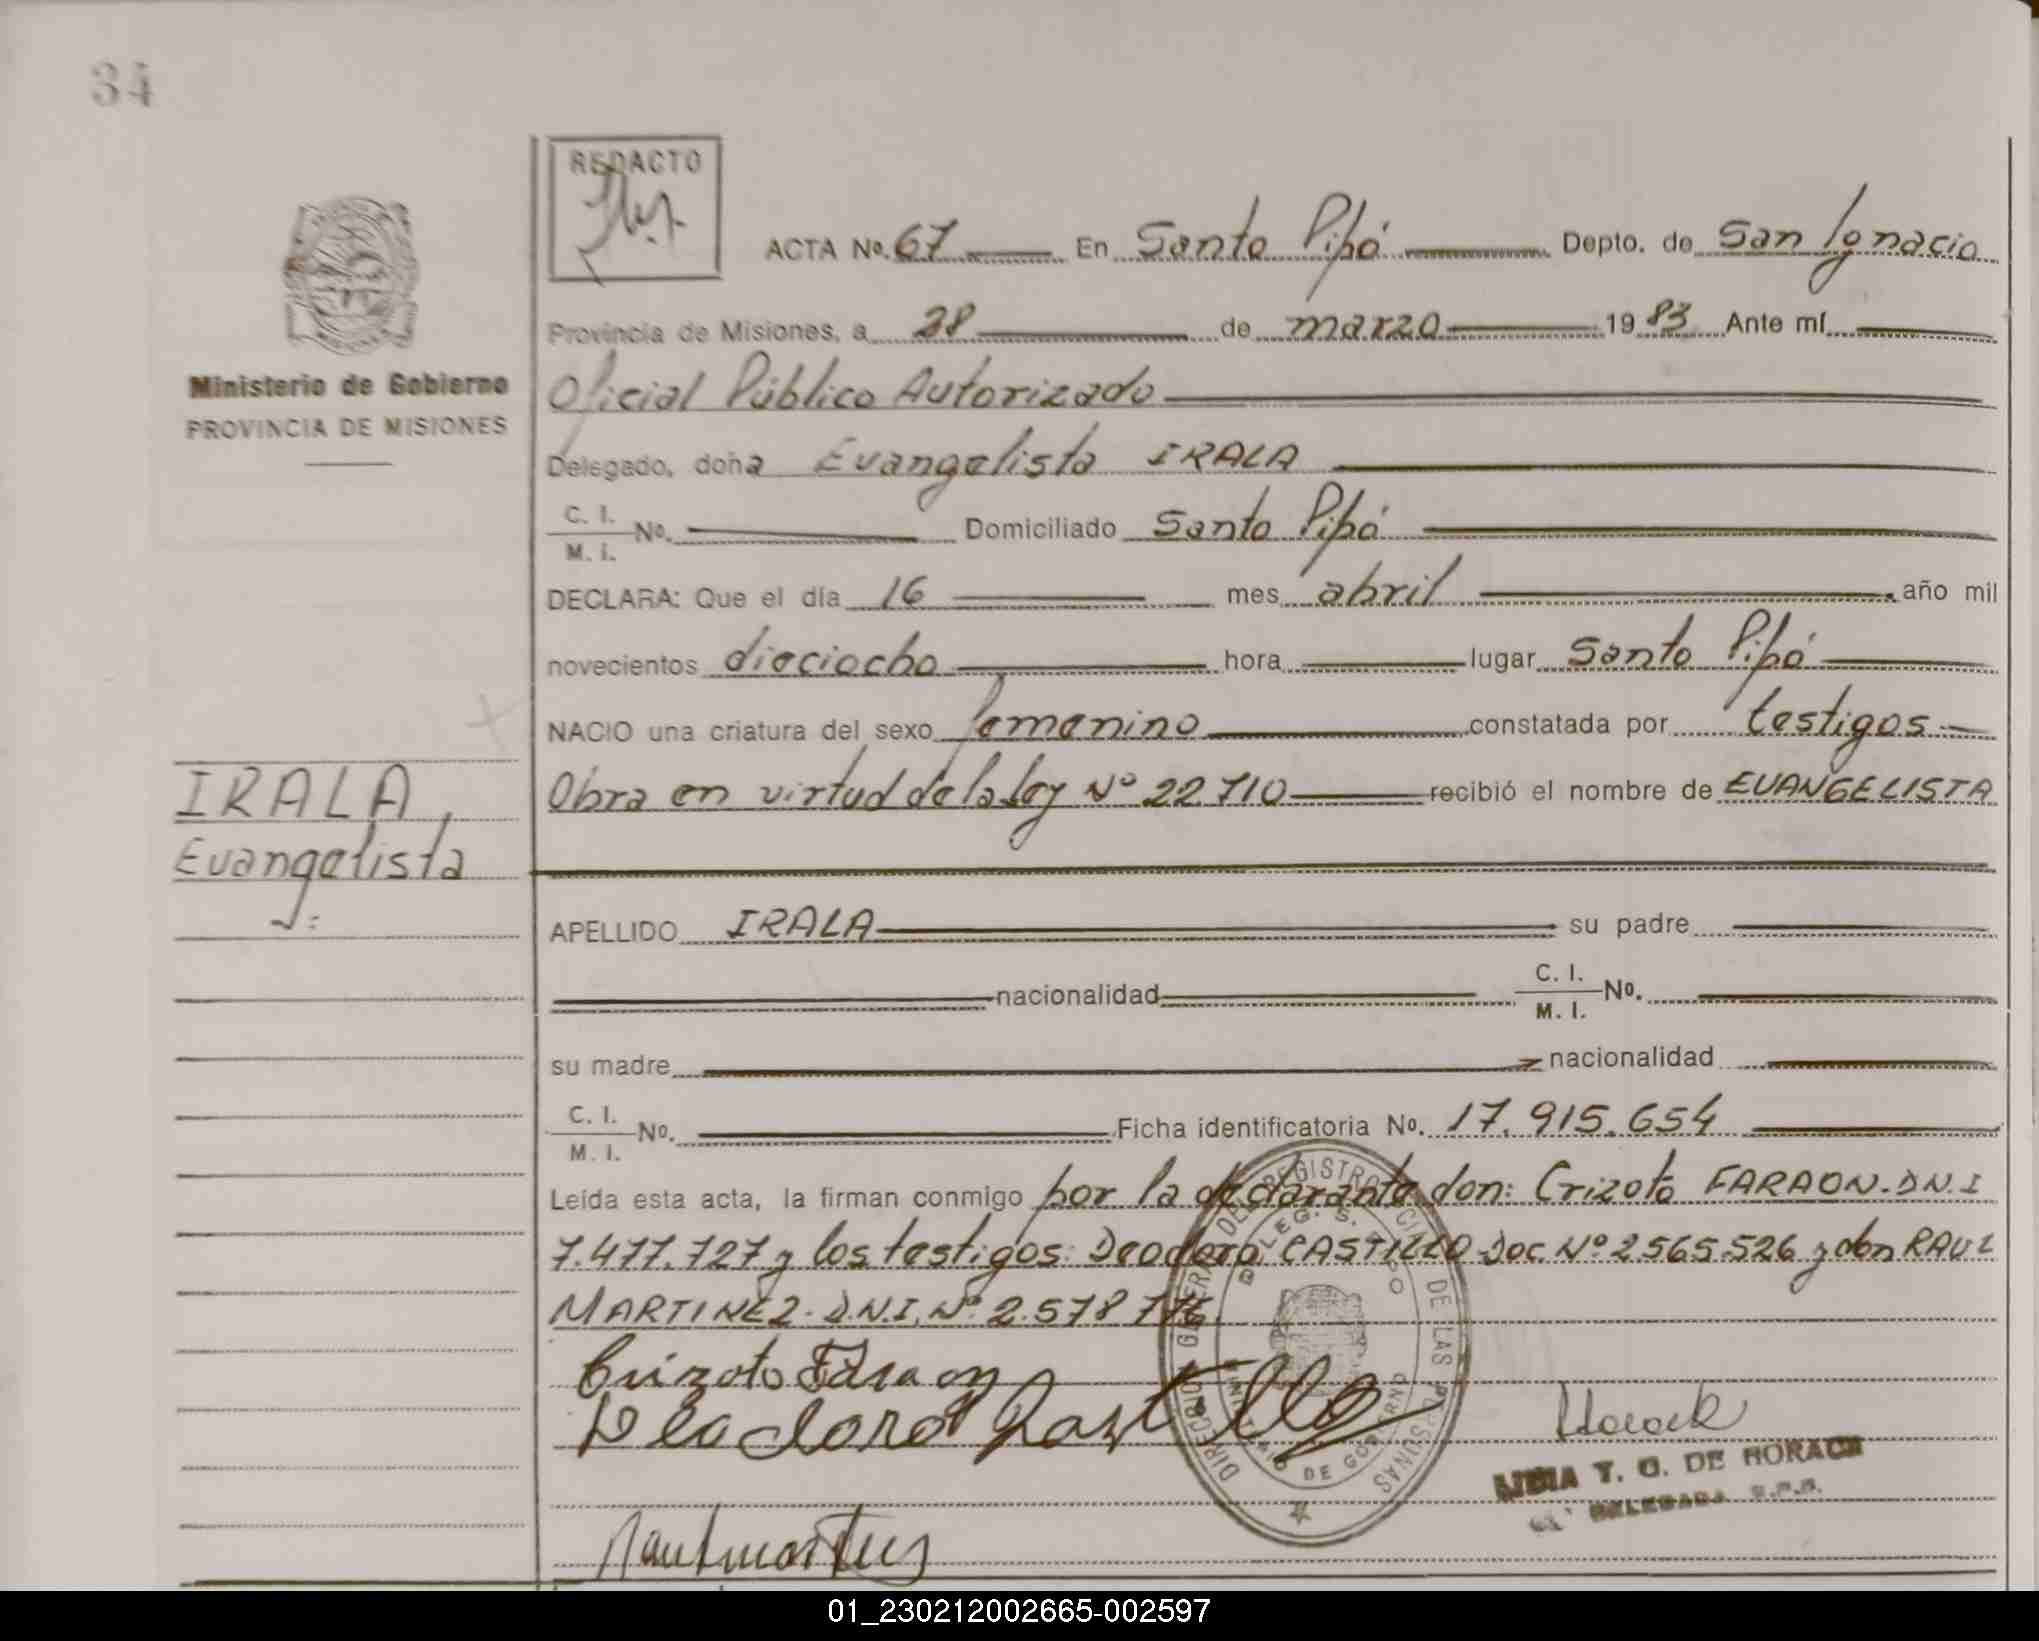 34
REDACTO
ACTA Nº. 67 En Santo Pipó Depto. de San Ignacio
Provincia de Misiones, a 28 de marzo 1983 Ante mí
Ministerio de Gobierno
PROVINCIA DE MISIONES
Oficial Público Autorizado
Delegado, doña Evangelista IRALA
C. I.
M. I. Nº. Domiciliado Santo Pipó
DECLARA: Que el día 16 mes abril año mil
novecientos dieciocho hora lugar Santo Pipó
NACIO una criatura del sexo femenino constatada por testigos
IRALA,
Evangelista
Obra en virtud de la ley Nº 22.710 recibió el nombre de EVANGELISTA
APELLIDO IRALA su padre
nacionalidad C. I.
M. I. Nº.
su madre nacionalidad
C. I.
M. I. Nº. Ficha identificatoria Nº. 17.915.654
Leída esta acta, la firman conmigo por la declarante don: Crizoto FARAON. D.N.I
7.477.727 y los testigos: Deodoro CASTILLO Doc. Nº 2.565.526 y don RAUL
MARTINEZ. D.N.I. Nº 2.578.776.
Crizoto Faraon
Deodoro Castillo
Horack
LIDIA T. G. DE HORACK
DELEGADA
Raul martinez
DIRECCION GENERAL DEL REGISTRO CIVIL DE LAS PERSONAS
DELEG. S. PIPO
MINISTERIO DE GOBIERNO
01_230212002665-002597